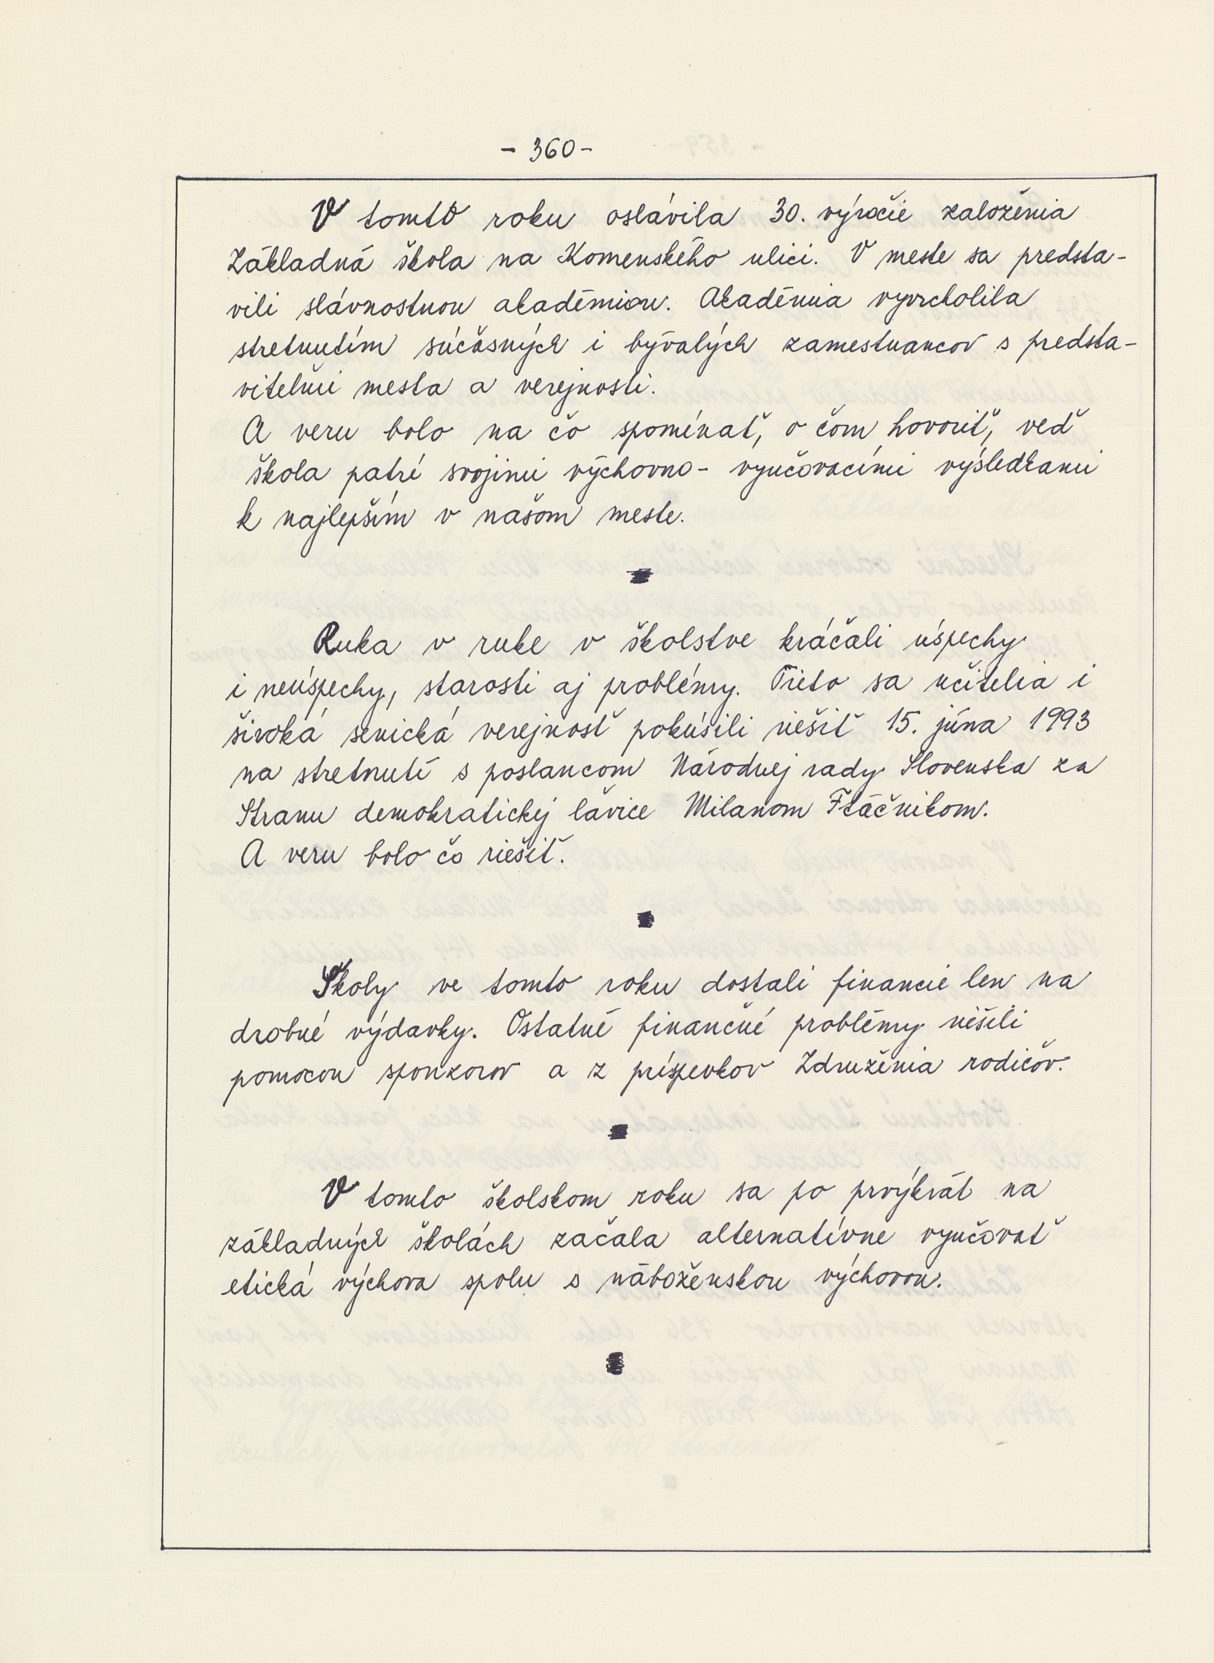 - 360 -
V tomto roku oslávila 30. výročie založenia
Základná škola na Komenského ulici. V meste sa predsta-
vili slávnostnou akadémiou. Akadémia vyvrcholila
stretnutím súčasných i bývalých zamestnancov s predsta-
viteľmi mesta a verejnosti.
A veru bolo na čo spomínať, o čom hovoriť, veď
škola patrí svojimi výchovno-vyučovacími výsledkami
k najlepším v našom meste.
Ruka v ruke v školstve kráčali úspechy
i neúspechy, starosti aj problémy. Tieto sa učitelia i
široká senická verejnosť pokúsili riešiť 15. júna 1993
na stretnutí s poslancom Národnej rady Slovenska za
Stranu demokratickej ľavice Milanom Ftáčnikom.
A veru bolo čo riešiť.
Školy ve tomto roku dostali financie len na
drobné výdavky. Ostatné finančné problémy riešili
pomocou sponzorov a z príspevkov Združenia rodičov.
V tomto školskom roku sa po prvýkrát na
základných školách začala alternatívne vyučovať
etická výchova spolu s náboženskou výchovou.